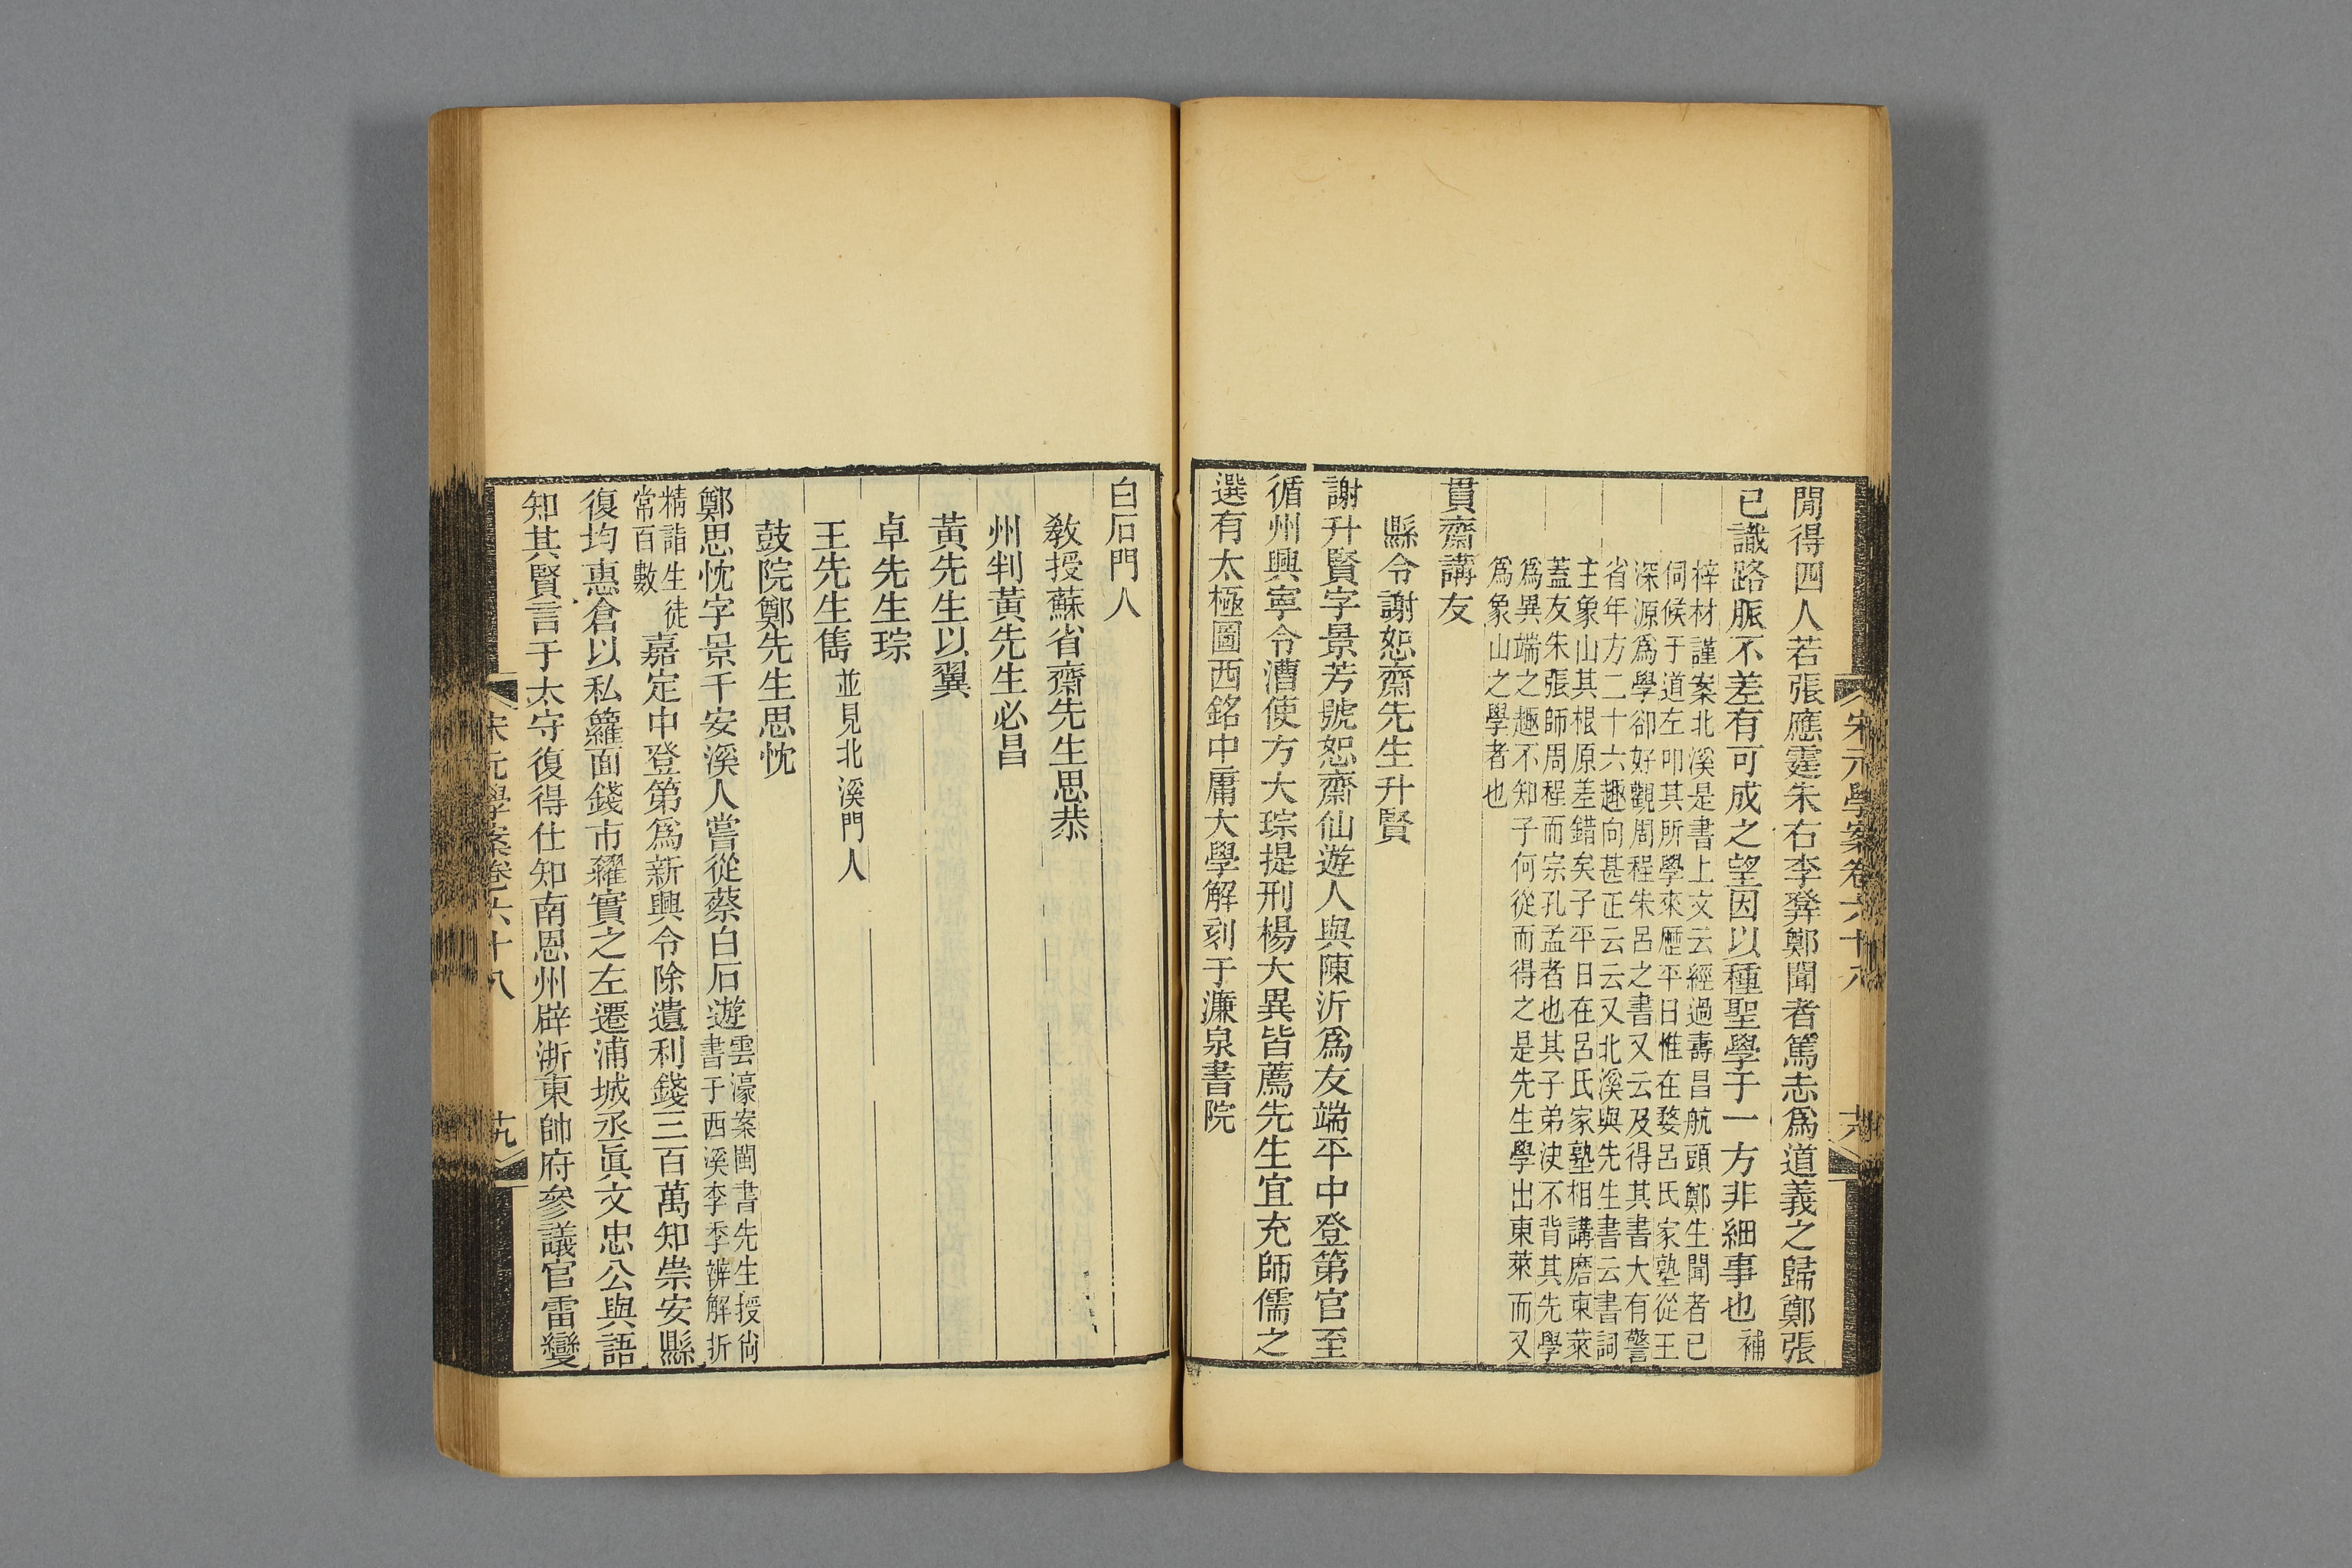 閒得四人若張應霆朱右李犖鄭聞者篤志爲道義之歸鄭張
已識路脈不差有可成之望因以種聖學于一方非細事也補
梓材謹案北溪是書上文云經過壽昌航頭鄭生聞者已
伺候于道左叩其所學來歷平日惟在婺呂氏家塾從王
深源爲學卻好觀周程朱呂之書又云及得其書大有警
省年方二十六趣向甚正云云又北溪與先生書云書詞
主象山其根原差錯矣子平日在呂氏家塾相講磨東萊
蓋友朱張師周程而宗孔孟者也其子弟決不背其先學
爲異端之趣不知子何從而得之是先生學出東萊而又
爲象山之學者也
貫齋講友
縣令謝恕齋先生升賢
謝升賢字景芳號恕齋仙遊人與陳沂爲友端平中登第官至
循州興寧令漕使方大琮提刑楊大異皆薦先生宜充師儒之
選有太極圖西銘中庸大學解刻于濂泉書院
白石門人
教授蘇省齋先生思恭
州判黃先生必昌
黃先生以翼
卓先生琮
王先生雋並見北溪門人
鼓院鄭先生思忱
鄭思忱字景千安溪人嘗從蔡白石遊雲濠案閩書先生授尙書于西溪李季辨解折
精詣生徒常百數嘉定中登第爲新興令除遺利錢三百萬知崇安縣
復均惠倉以私糴面錢市糴實之左遷浦城丞眞文忠公與語
知其賢言于太守復得仕知南恩州辟浙東帥府參議官雷變
宋元學案卷六十八